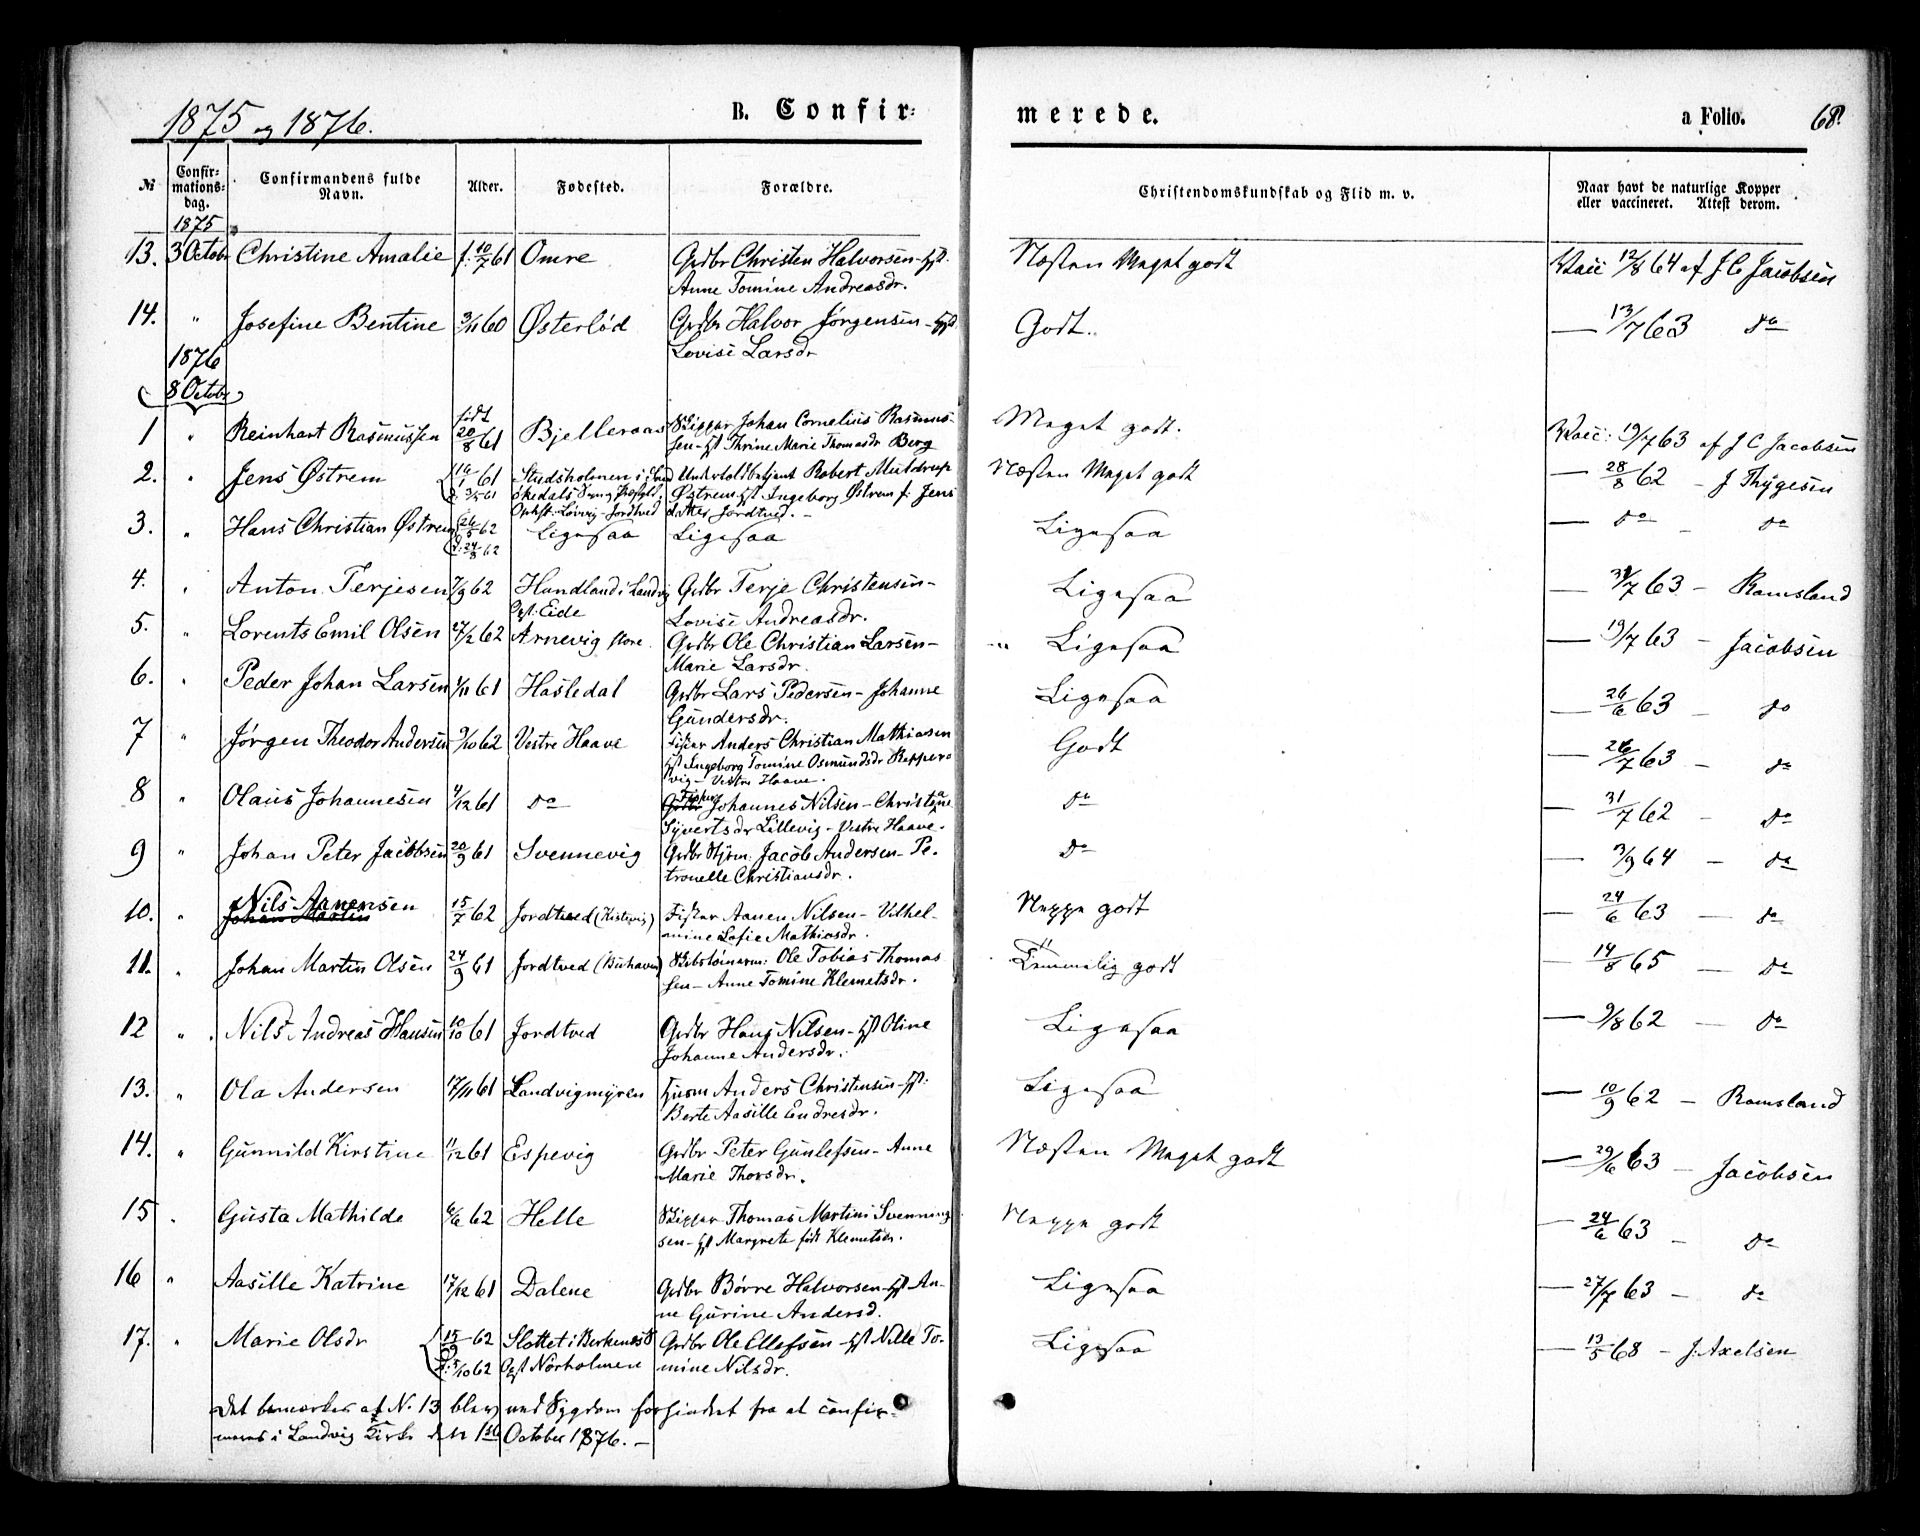 1875 og 1876.
B. Confir-
merede.
a Folio. 68.
№ Confir-mations-dag. Confirmandens fulde Navn. Alder. Fødested. Forældre. Christendomskundskab og Flid m. v. Naar havt de naturlige Kopper eller vaccineret. Attest derom.
1875
13. 3 Octobr Christine Amalie f. 10/7 61 Omre Grdbr Christen Halvorsen - Hst. Næsten Meget godt Vacc 12/8 64 af J C Jacobsen
Anne Tomine Andreasdr.
14. " Josefine Bentine 3/11 60 Østerlød Grdbr Halvor Jørgensen - Hst Godt. — 13/7 63 do
Lovise Larsdr
1876
8 Octobr
1 " Reinhart Rasmussen født 20/8 61 Bjelleraas Skipper Johan Cornelius Rasmus- Meget godt. Vacc: 19/7 63 af J C Jacobsen
sen - Hst Thrine Marie Thomasdr Berg
2. " Jens Østrem 1 61 Studsholmen i Undertoldbetjent Robert Næsten Meget godt — 28/8 62 - J Thygesen
Østrem Hst Ingeborg Østrem f. Jens
Jordtved datter Jordtved. -
3. " Hans Christian Østrem 26/5 62 Ligesaa Ligesaa Ligesaa — do - do
d. 24/8 62
4. " Anton Terjesen 7/9 62 Hundland i Landvig Grdbr Terje Christensen - Ligesaa — 31/7 63 - Ramsland
Opst: Eide Lovise Andreasdr.
5. " Lorents Emil Olsen 27/2 62 Arnevig store. Grdbr Ole Christian Larsen - Ligesaa — 19/7 63 - Jacobsen
Marie Larsdr.
6. " Peder Johan Larsen 1/11 61 Hasledal Grdbr Lars Pedersen - Johanne Ligesaa — 26/6 63 - do
Gundersdr.
7 " Jørgen Theodor Andersen 9/10 62 Vestre Haave Fisker Anders Christian Mathiasen Godt — 26/7 63 - do
Hst Ingeborg Tomine Osmundsdr Reppers
vig - Vestre Haave.
8 " Olaus Johannesen 4/12 61 do Grdbr Fisker Johannes Nilsen - Christiane do — 31/7 62 - do
Syvertsdr Lillevig - Vestre Haave.
9 " Johan Peter Jacobsen 20/9 61 Svennevig Grdbr Styrm: Jacob Andersen - Pe- do — 3/9 64 - do
tronelle Christiansdr.
10. " Johan Martin Nils Aanensen 15/7 62 Jordtved (Kistevig) Fisker Aanen Nilsen - Vilhel- Neppe godt — 24/6 63 - do
mine Sofie Mathiasdr.
11. " Johan Martin Olsen 24/9 61 Jordtved (Buhaven) Skibstømrm: Ole Tobias Thomas Temmelig godt — 14/8 65 — do
sen - Anne Tomine Klemetsdr.
12 " Nils Andreas Hansen 10/10 61 Jordtved Grdbr Hans Nilsen - Hst Oline Ligesaa — 9/8 62 — do
Johanne Andersdr.
13. " Ola Andersen 17/11 61 Landvigmyren Husm Anders Christensen - Hst: Ligesaa — 10/9 62 - Ramsland
Berte Aasille Endresdr.
14. " Gunnild Kirstine 11/12 61 Espevig Grdbr Peter Gunlefsen - Anne Næsten Meget godt — 29/6 63 - Jacobsen
Marie Thorsdr.
15 " Gusta Mathilde 6/6 62 Helle Skipper Thomas Martin Svenning Neppe godt — 24/6 63 - do
sen - Hst Margrete født Klemetsen.
16 " Aasille Katrine 17/12 61 Dalene Grdbr Børre Halvorsen - Hst An- Ligesaa — 27/7 63 - do
ne Gurine Andersd.
17. " Marie Olsdr 15/9 62 Slottet i Birkenæs Grdbr Ole Ellefsen - Hst Nille To- Ligesaa — 13/5 68 - J. Axelsen
d: 5/10 62 Opst Nørholmen mine Nilsdr.
Det bemærkes at N. 13 blev ved Sygdom forhindret fra at confir-
meres i Landvig Kirke den 1ste October 1876. -